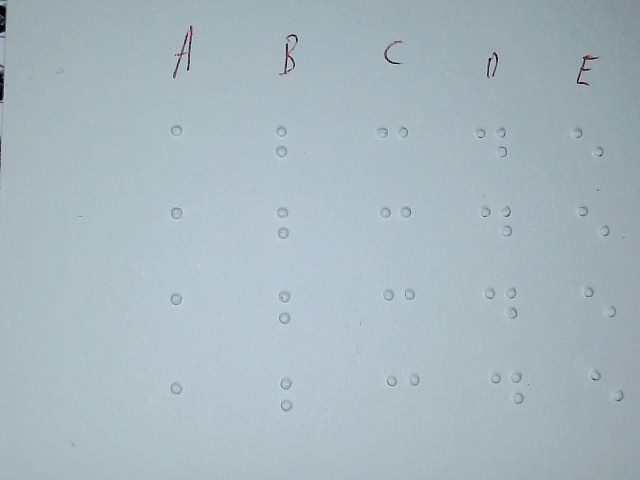 A B C D E
⠁ ⠃ ⠉ ⠙ ⠑
⠁ ⠃ ⠉ ⠙ ⠑
⠁ ⠃ ⠉ ⠙ ⠑
⠁ ⠃ ⠉ ⠙ ⠑